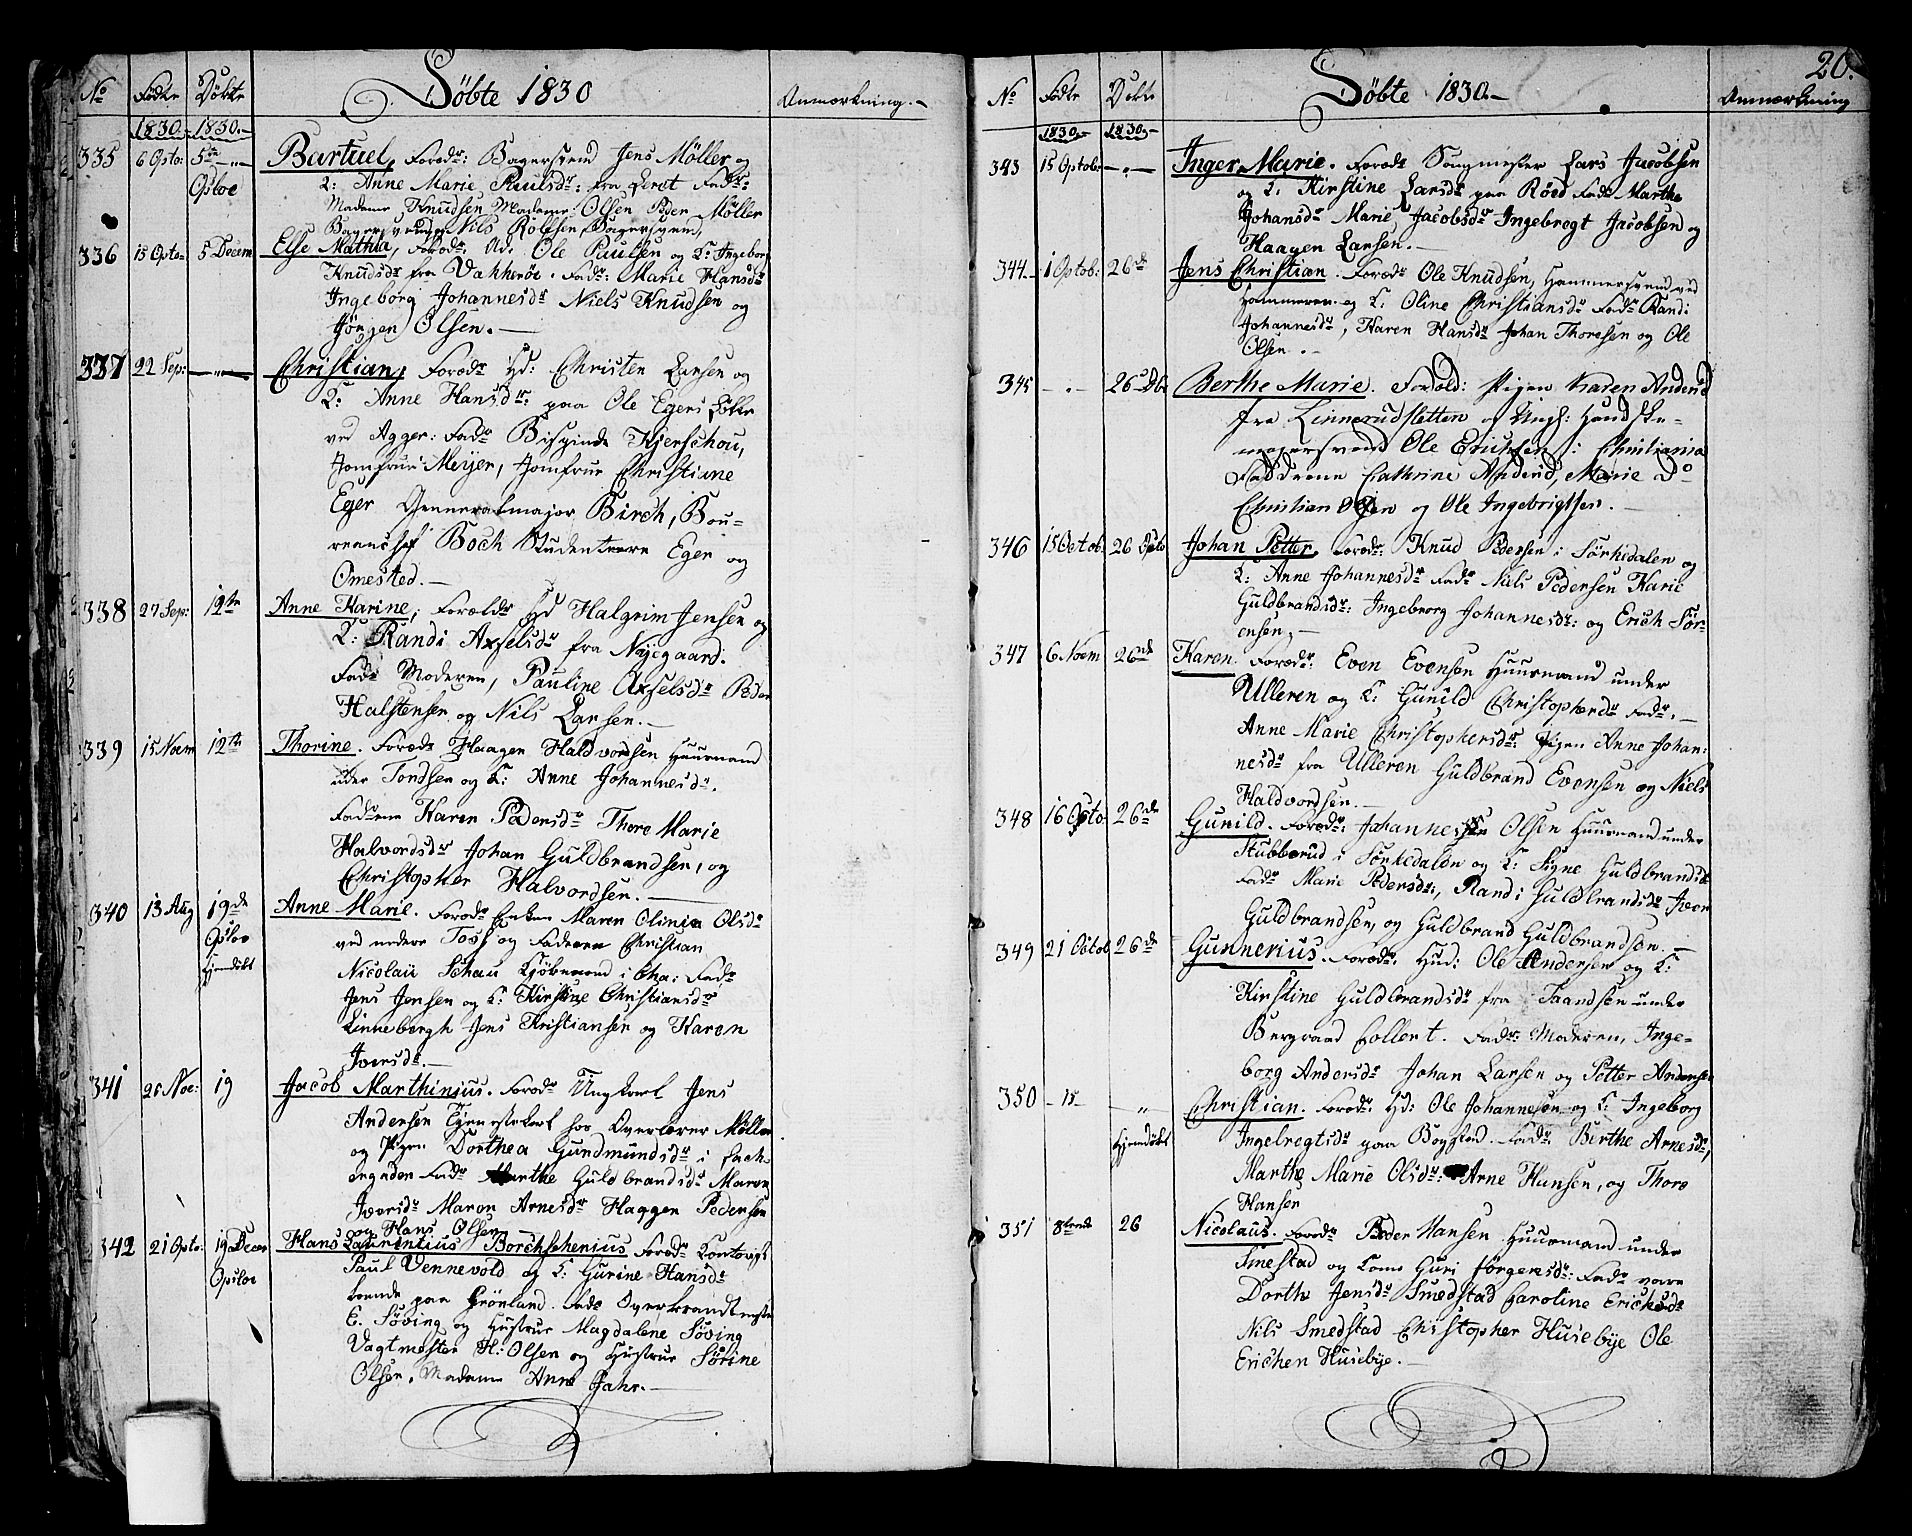 No Fødte Døbte Døbte 1830 Anmærkning.-
1830.- 1830.-
335 6 Octo: 5te -"- Bartuel, Foræd: Bagersvend Jens Möller og
Opsloe K: Anne Marie Paulsdr: fra Leret Fadr
Madame Knudsen Madame: Olsen Peder Möller
Bagersvend Nils Rolfsen Bagersvend,
336 15 Octo- 5 Decem Else Mathea, Forædr Ole Paulsen og K: Ingeborg
Knudsdr fra Vækkerøe. Fadr: Marie Hansdr
Ingeborg Johannesdr Niels Knudsen og
Jörgen Olsen.-
337 22 Sep: -"- Christian, Forædr Hd: Christen Larsen og
K: Anne Hansdr: paa Ole Egers Løkke
ved Agger: Fadr Bispinde Kjerschou,
Jomfrue Meyer, Jomfrue Christiane
Eger Generalmajor Birch, Bou-
reauchef Boch Studenterne Eger og
Omested.-
338 27 Sep: 12te Anne Karine, Forældr Hd Halgrim Jensen og
K: Randi Axselsdr fra Nyegaard.
Fadr Moderen, Pauline Axselsdr Peder
Halstensen og Nils Larsen.-
339 15 Noem 12te Thorine. Forædr Haagen Haldvordsen Huusmand
under Tondsen og K: Anne Johannesdr.
Fadrene Karen Pedersdr Thore Marie
Halvordsdr Johan Guldbrandsen, og
Christopher Halvordsen.-
340 13 Aug 19de Anne Marie. Forædr Enken Maren Olinia Olsdr
Opsloe ved nedere Foss og Faderen Christian
Hjemdøbt Nicolaü Schau Kjöbmand i Cha: Fadr
Jens Jensen og K: Kirstine Christiansdr
Linnebergh Jens Kristiansen og Karen
Iversdr.-
341 26 Noe: 19 Jacob Marthinius. Forædr Ungkarl Jens
Andersen Tjenestekarl hos Overlærer Möller
og Pigen Dorthea Gundmundsdr i
Fadr Marthe Guldbrandsdr Maren
Iversdr Maren Arnesdr Haggen Pedersen
og Hans Olsen
342 21 Octo: 19 Decem Hans Laurentius Borchsehenius Forædr
Opsloe Paul Vennevold og K: Gurine Hansdr
boende paa Grönland. Fadr
E. Söving og Hustrue Magdalene Söving
Vagtmester H: Olsen og Hustrue Sörine
Olsen. Madame Anne Jahr.-
20.
No Fødte Døbte Døbte 1830.- Anmærkning
1830.- 1830.-
343 15 Octob: -"- Inger Marie. Forædr Sangmester Lars Jacobsen
og K: Kirstine Larsdr paa Röed Fadr Marthe
Johansdr Marie Jacobsdr Ingebregt Jacobsen og
Haagen Larsen.-
344. 1 Octob: 26de Jens Christian. Forædr Ole Knudsen, Hammersvend ved
Hammeren og K: Oline Christiansdr Fadr Randi
Johannesdr, Karen Hansdr Johan Thoresen og Ole
Olsen.-
345 -"- 26 Dbr Berthe Marie. Foræld: Pigen Karen Andersd
fra Linnerudsletten og Ungk: Handske-
magersvend Ole Erichsen i Christiania
Fadderne Cathrine Andersd, Marie Do
Christian Olsen og Ole Ingebrigtsen.-
346 15 Octob: 26 Octo Johan Petter, Forædr: Knud Pedersen i Sörkedalen og
K: Anne Johannesdr Fadr Nils Pedersen Karie
Guldbrandsdr: Ingeborg Johannesdr: og Erich Sör-
ensen,-
347 6 Noem 26nde Karen Forædr: Even Evensen Huusmand under
Ulleren og K: Gunild Christophersdr Fadr.-
Anne Marie Christophersdr: Pigen Anne Johan:
nesdr fra Ulleren Guldbrand Evensen og Niels
Haldvordsen.-
348 16 Octo 26de Gunild. Forædr: Johannes Olsen Huusmand under
Stubberud i Sörkedalen og K: Signe Guldbrandsdr
Fadr Marie Pedersdr:, Randi Guldbrandsdr Iver
Guldbrandsen, og Guldbrand Guldbrandsen.-
349 21 Octob 26de Gunnerius. Forædr. Hud: Ole Andersen og K:
Kirstine Guldbrandsdr fra Taandsen under
Bergraad Collert. Fadr: Moderen, Inge-
borg Andersdr Johan Larsen og Petter Andersen
350 -15- -"- Christian. Forædr. Hd: Ole Johannesen og K: Ingeborg
Hjemdöbt Ingelregtsdr paa Bogstad. Fadr: Berthe Arnesdr,
Marthe Marie Olsdr: Arne Hansen, og Thore
Hansen
351 8tende 26 Nicolaus. Forædr Peder Hansen. Huusmand under
Smestad og Kone Guri Jörgensdr: Fadr vare
Dorthe Jensdr Smedstad Caroline Erichsdr
Nils Smedstad Christopher Husebÿe Ole
Erichen Husebÿe.-